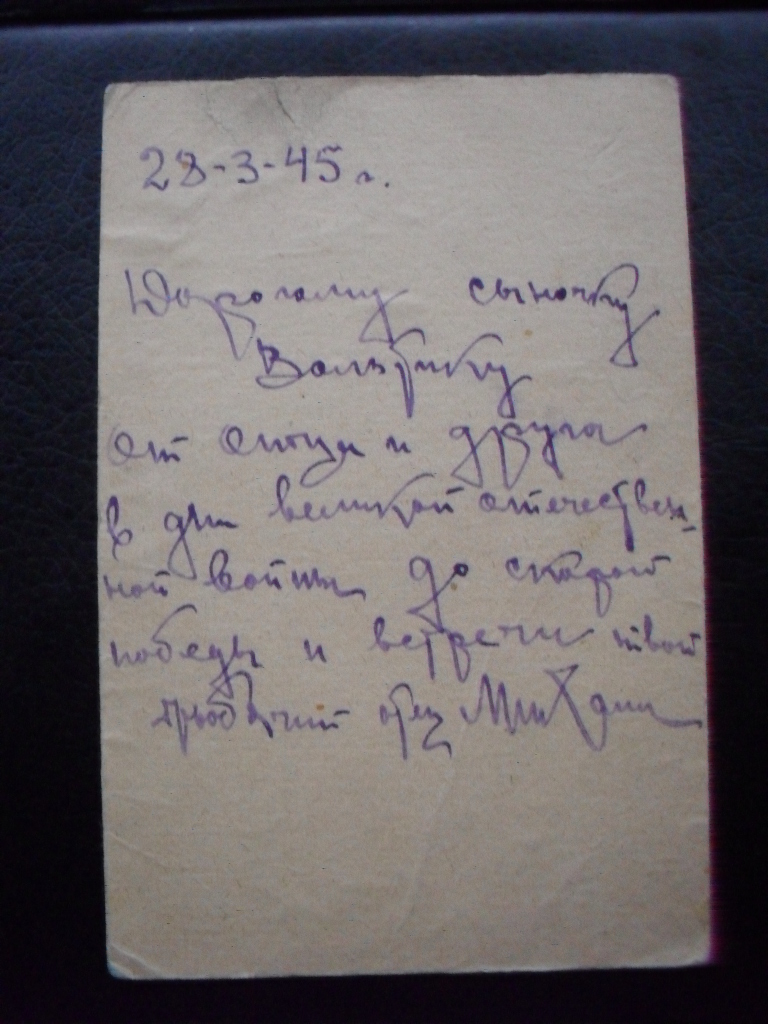 28-3-45 г.
Дорогому сыночку
Вольтику
от отца и друга
в дни великой отечествен-
ной войны до скорой
победы и встречи твой
любящий отец Михаил